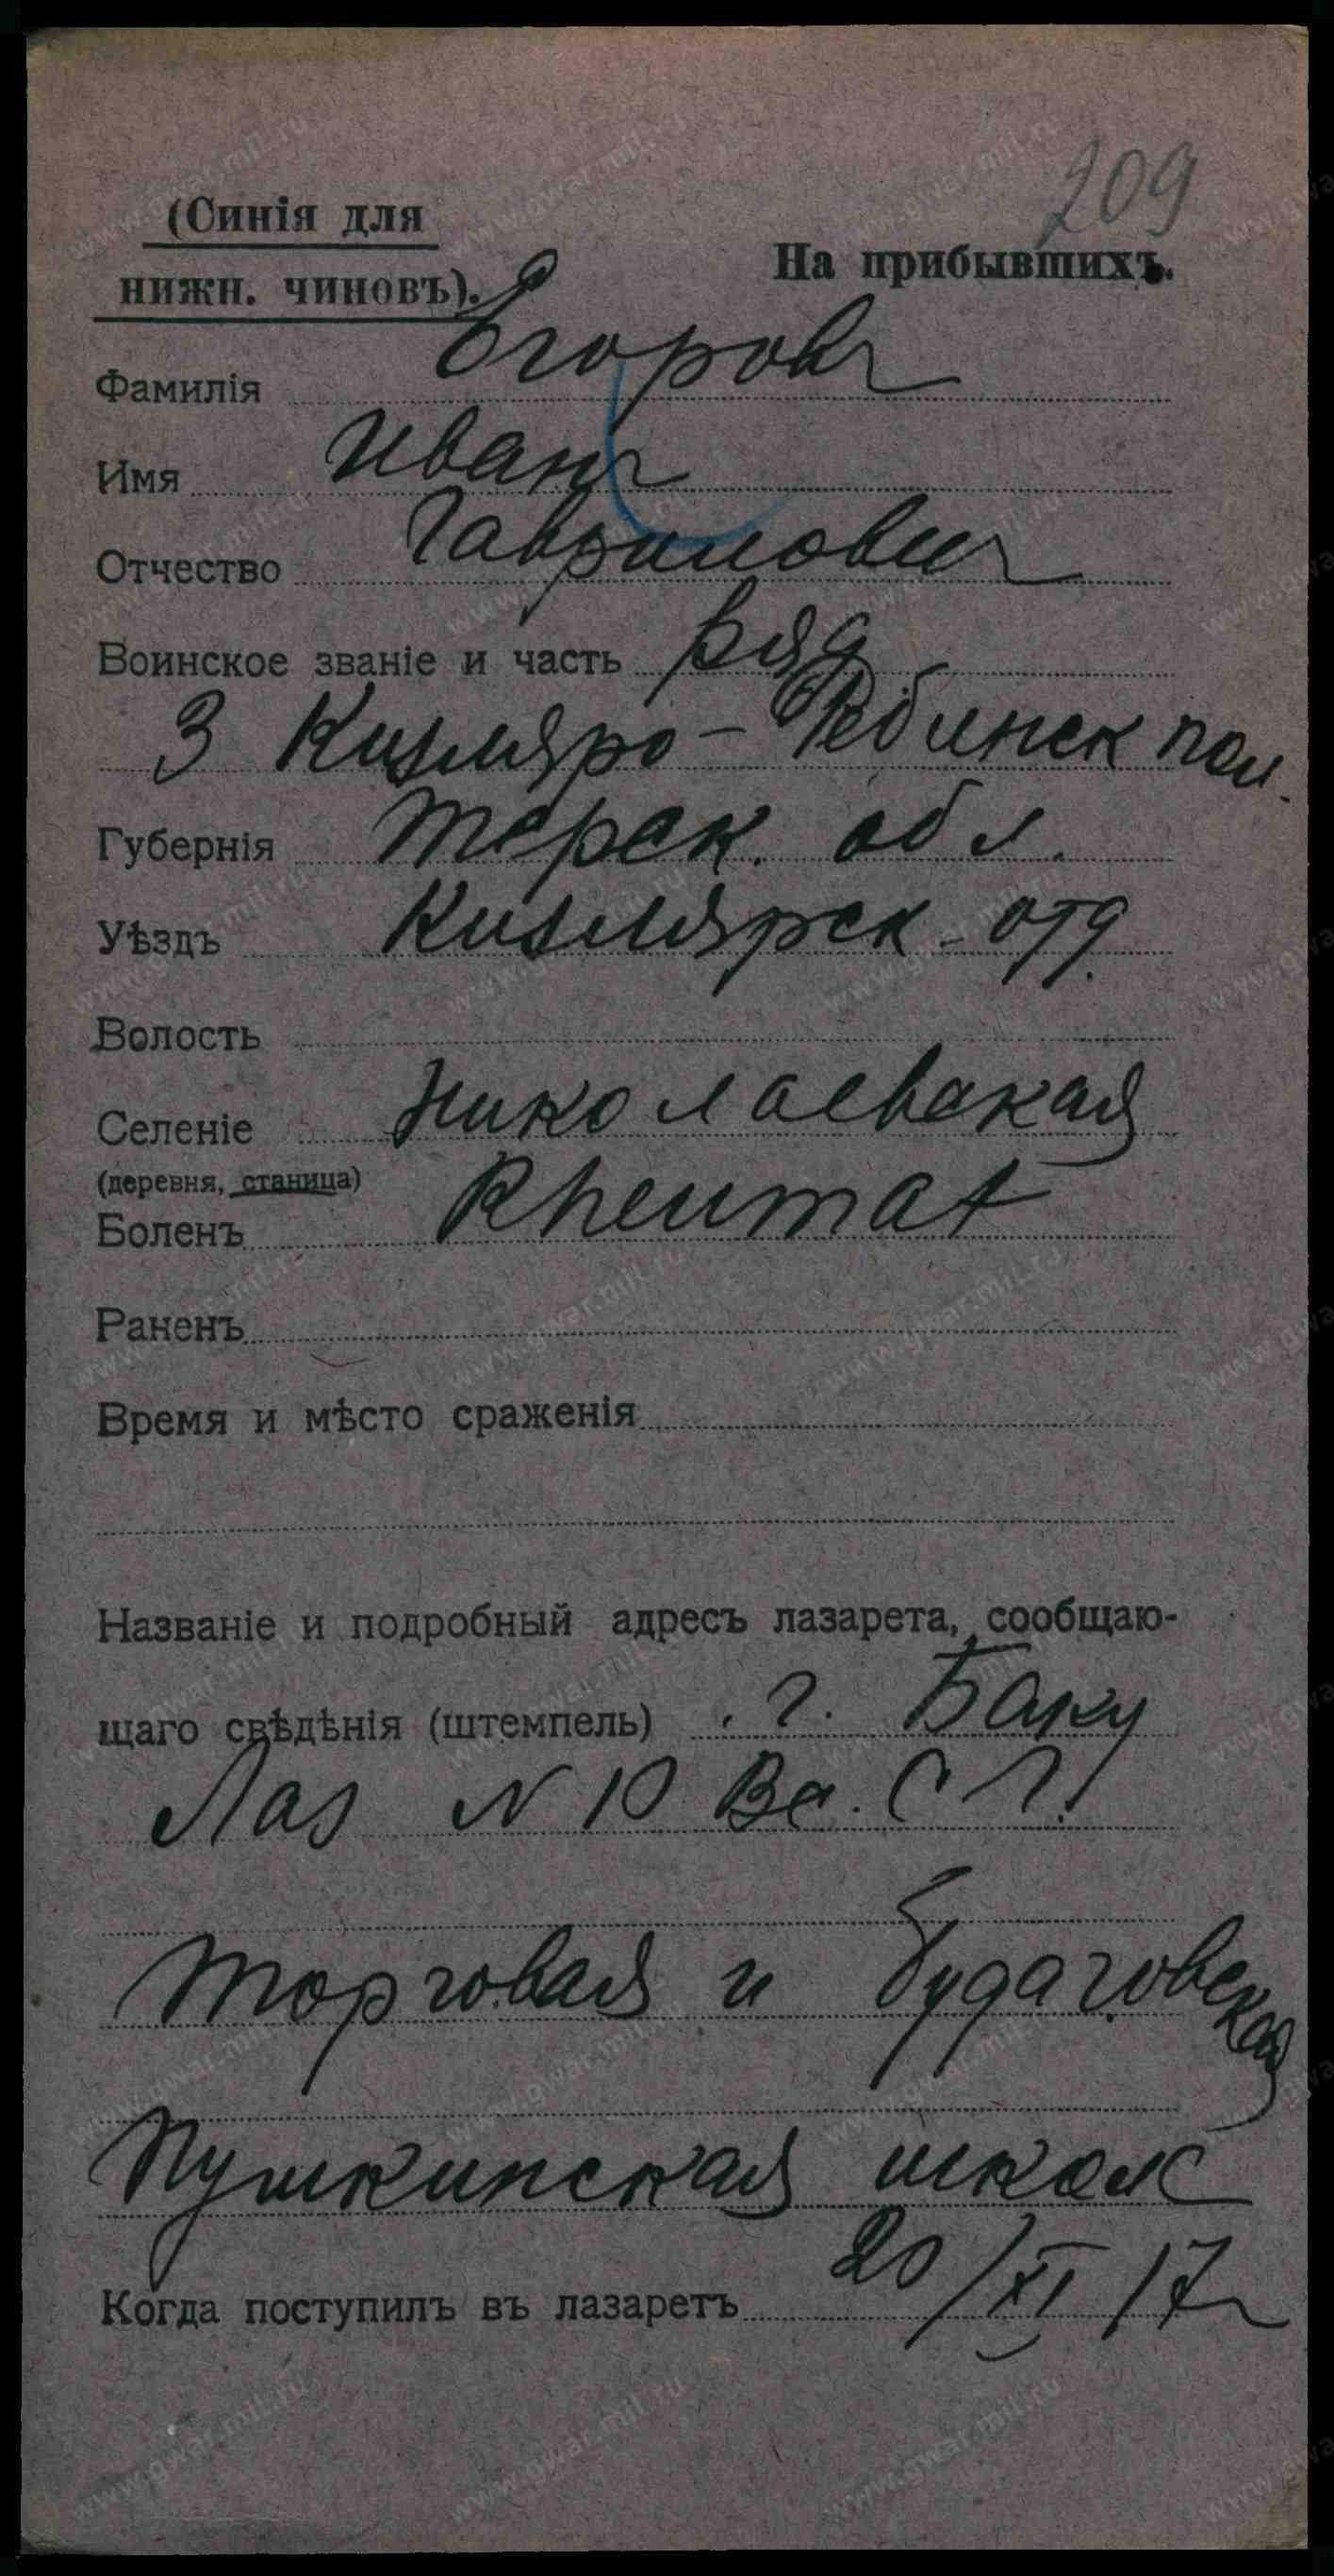 209
(Синія для
нижн. чиновъ).
На прибывшихъ.
Фамилія Егоровъ
Имя Иванъ
Отчество Гавриловичъ
Воинское званіе и часть ряд
3 Кизляро-Гребенск пол.
Губернія Терск. обл.
Уѣздъ Кизлярск. отд.
Волость
Селеніе Николаевская
(деревня, станица)
Боленъ Rheumat
Раненъ
Время и мѣсто сраженія
Названіе и подробный адресъ лазарета, сообщаю-
щаго свѣдѣнія (штемпель) г. Баку
Лаз N 10 Вс. С Г.
Торговая и Будаговская
Пушкинская школ
Когда поступилъ въ лазаретъ 20/XI 17 г
www.gwar.mil.ru